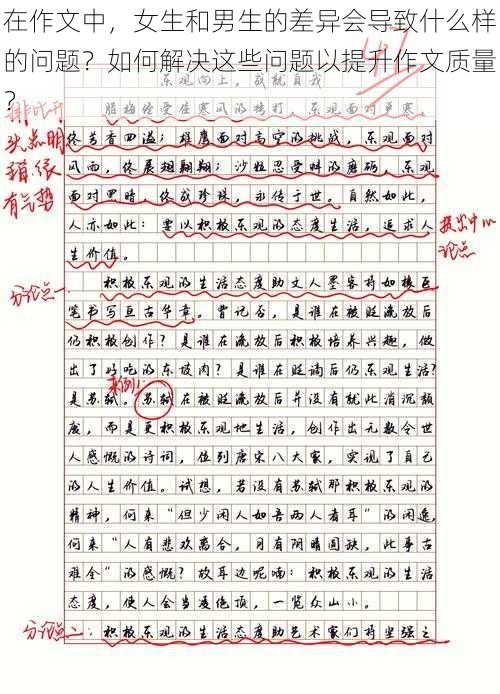 在作文中，女生和男生的差异会导致什么样
的问题？如何解决这些问题以提升作文质量
？
47
乐观向上，成就自我
排比开
头点明
题，很
有气势
腊梅经受住寒风的拷打，乐观面对寒，
终芳香四溢；雄鹰面对高空的挑战，乐观面对
风雨，终展翅翱翔；沙粒忍受蚌的磨砺，乐观
面对黑暗，终成珍珠，永传于世。自然如此，
人亦如此：要以积极乐观的态度生活，追求人
生价值。
提出中心
论点
分论点一
积极乐观的生活态度助文人墨客将如椽巨
笔书写亘古华章。曾记否，是谁在被贬流放后
仍积极创作？是谁在流放后积极培养兴趣，做
出了好吃的东坡肉？是谁在贬谪后仍乐观生活？
事例1
是苏轼。苏轼在被贬流放后并没有就此消沉颓
废，而是更积极乐观地生活，创作出无数令世
人感慨的诗词，位列唐宋八大家，实现了自己
的人生价值。试想，若没有苏轼那积极乐观的
精神，何来“但少闲人如吾两人者耳”的闲逸，
何来“人有悲欢离合，月有阴晴圆缺，此事古
难全”的感慨？故耳边呢喃：积极乐观的生活
态度，使人会当凌绝顶，一览众山小。
分论点二：
积极乐观的生活态度助艺术家们将坐强之